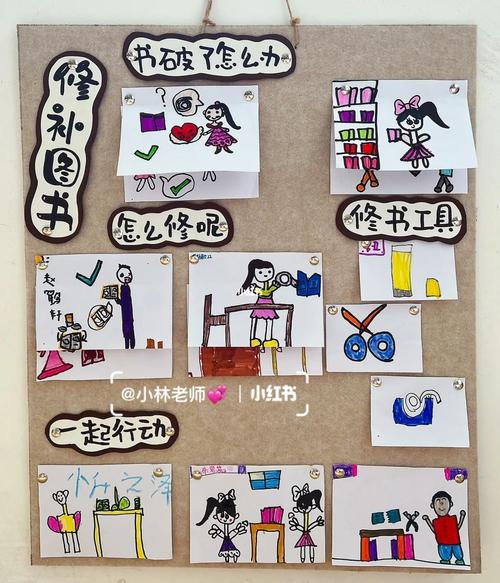 修补图书
书破了怎么办
?
怎么修呢
修书工具
@小林老师 | 小红书
一起行动